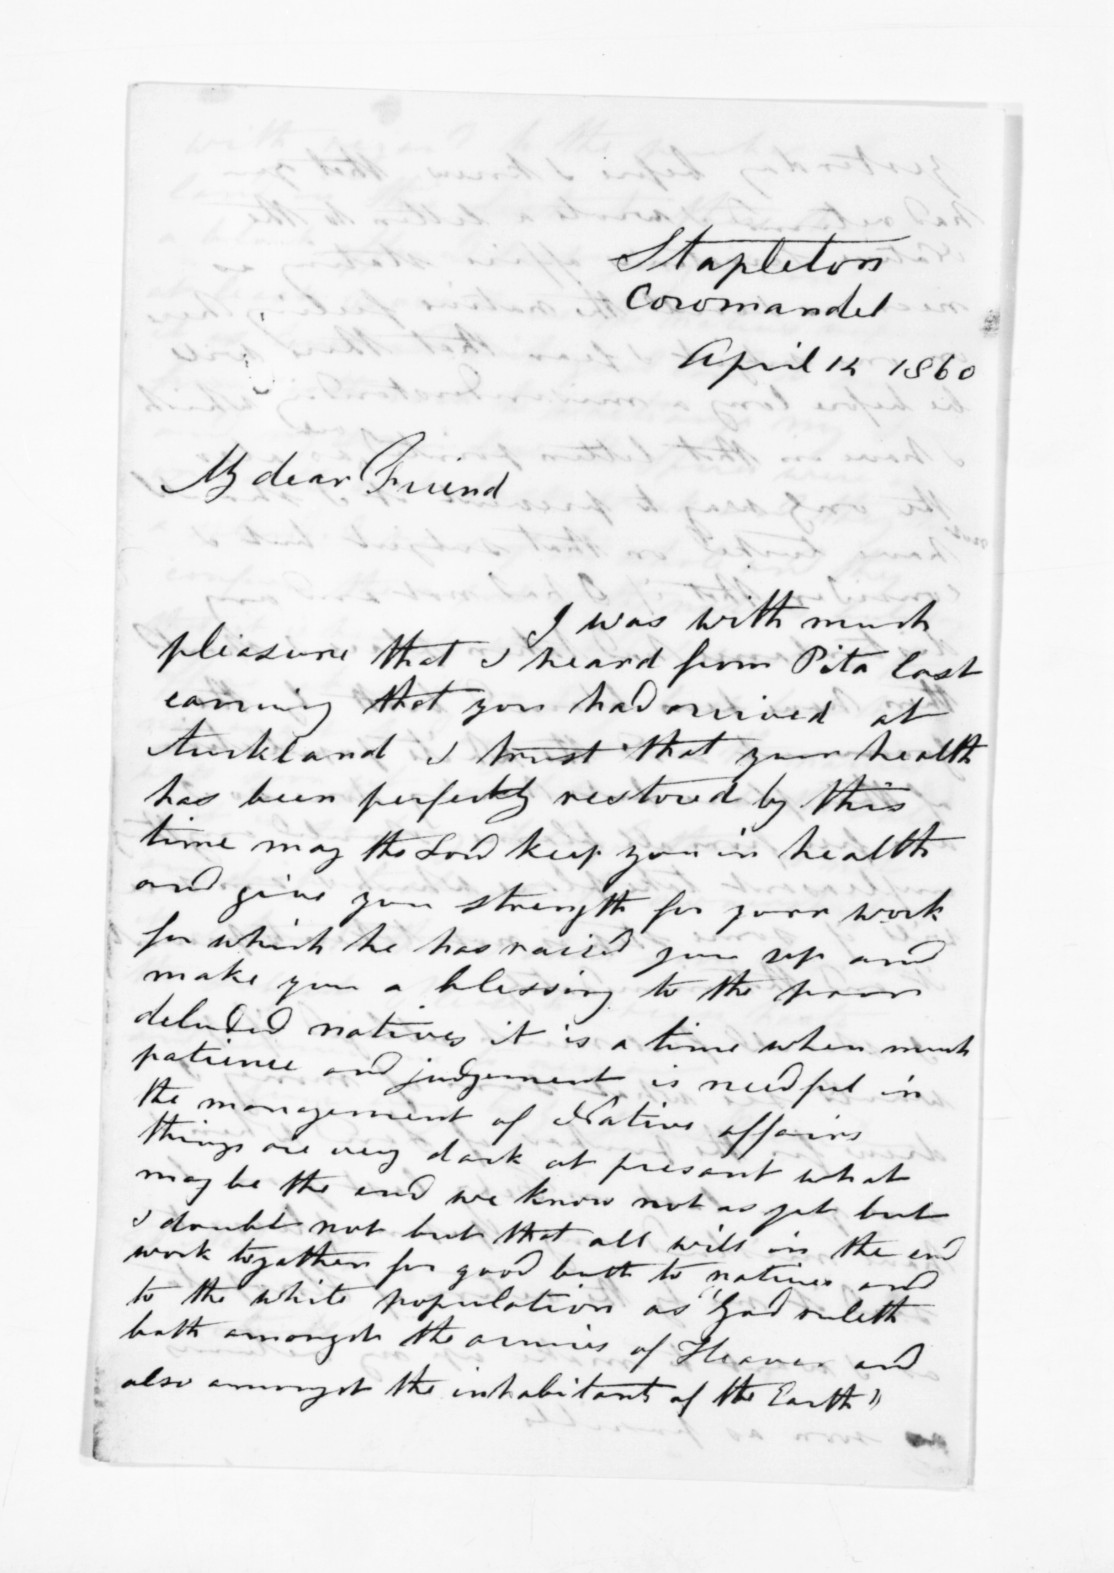 Stapleton
Coromandel
April 12 1860
My dear Friend
I was with much
pleasure that I heard from Pita last
evening that you had arrived at
Auckland I trust that your health
has been perfectly restored by this
time may the Lord keep you in health
and give you strength for your work
for which he has raised you up and
make you a blessing to the poor
deluded natives it is a time when much
patience and judgement is needful in
the management of Native affairs
things are very dark at present what
may be the end we know not as yet but
I doubt not but that all will in the end
work together for good both to natives and
to the white population as "God ruleth
both amongst the armies of Heaven and
also amongst the inhabitants of the Earth"